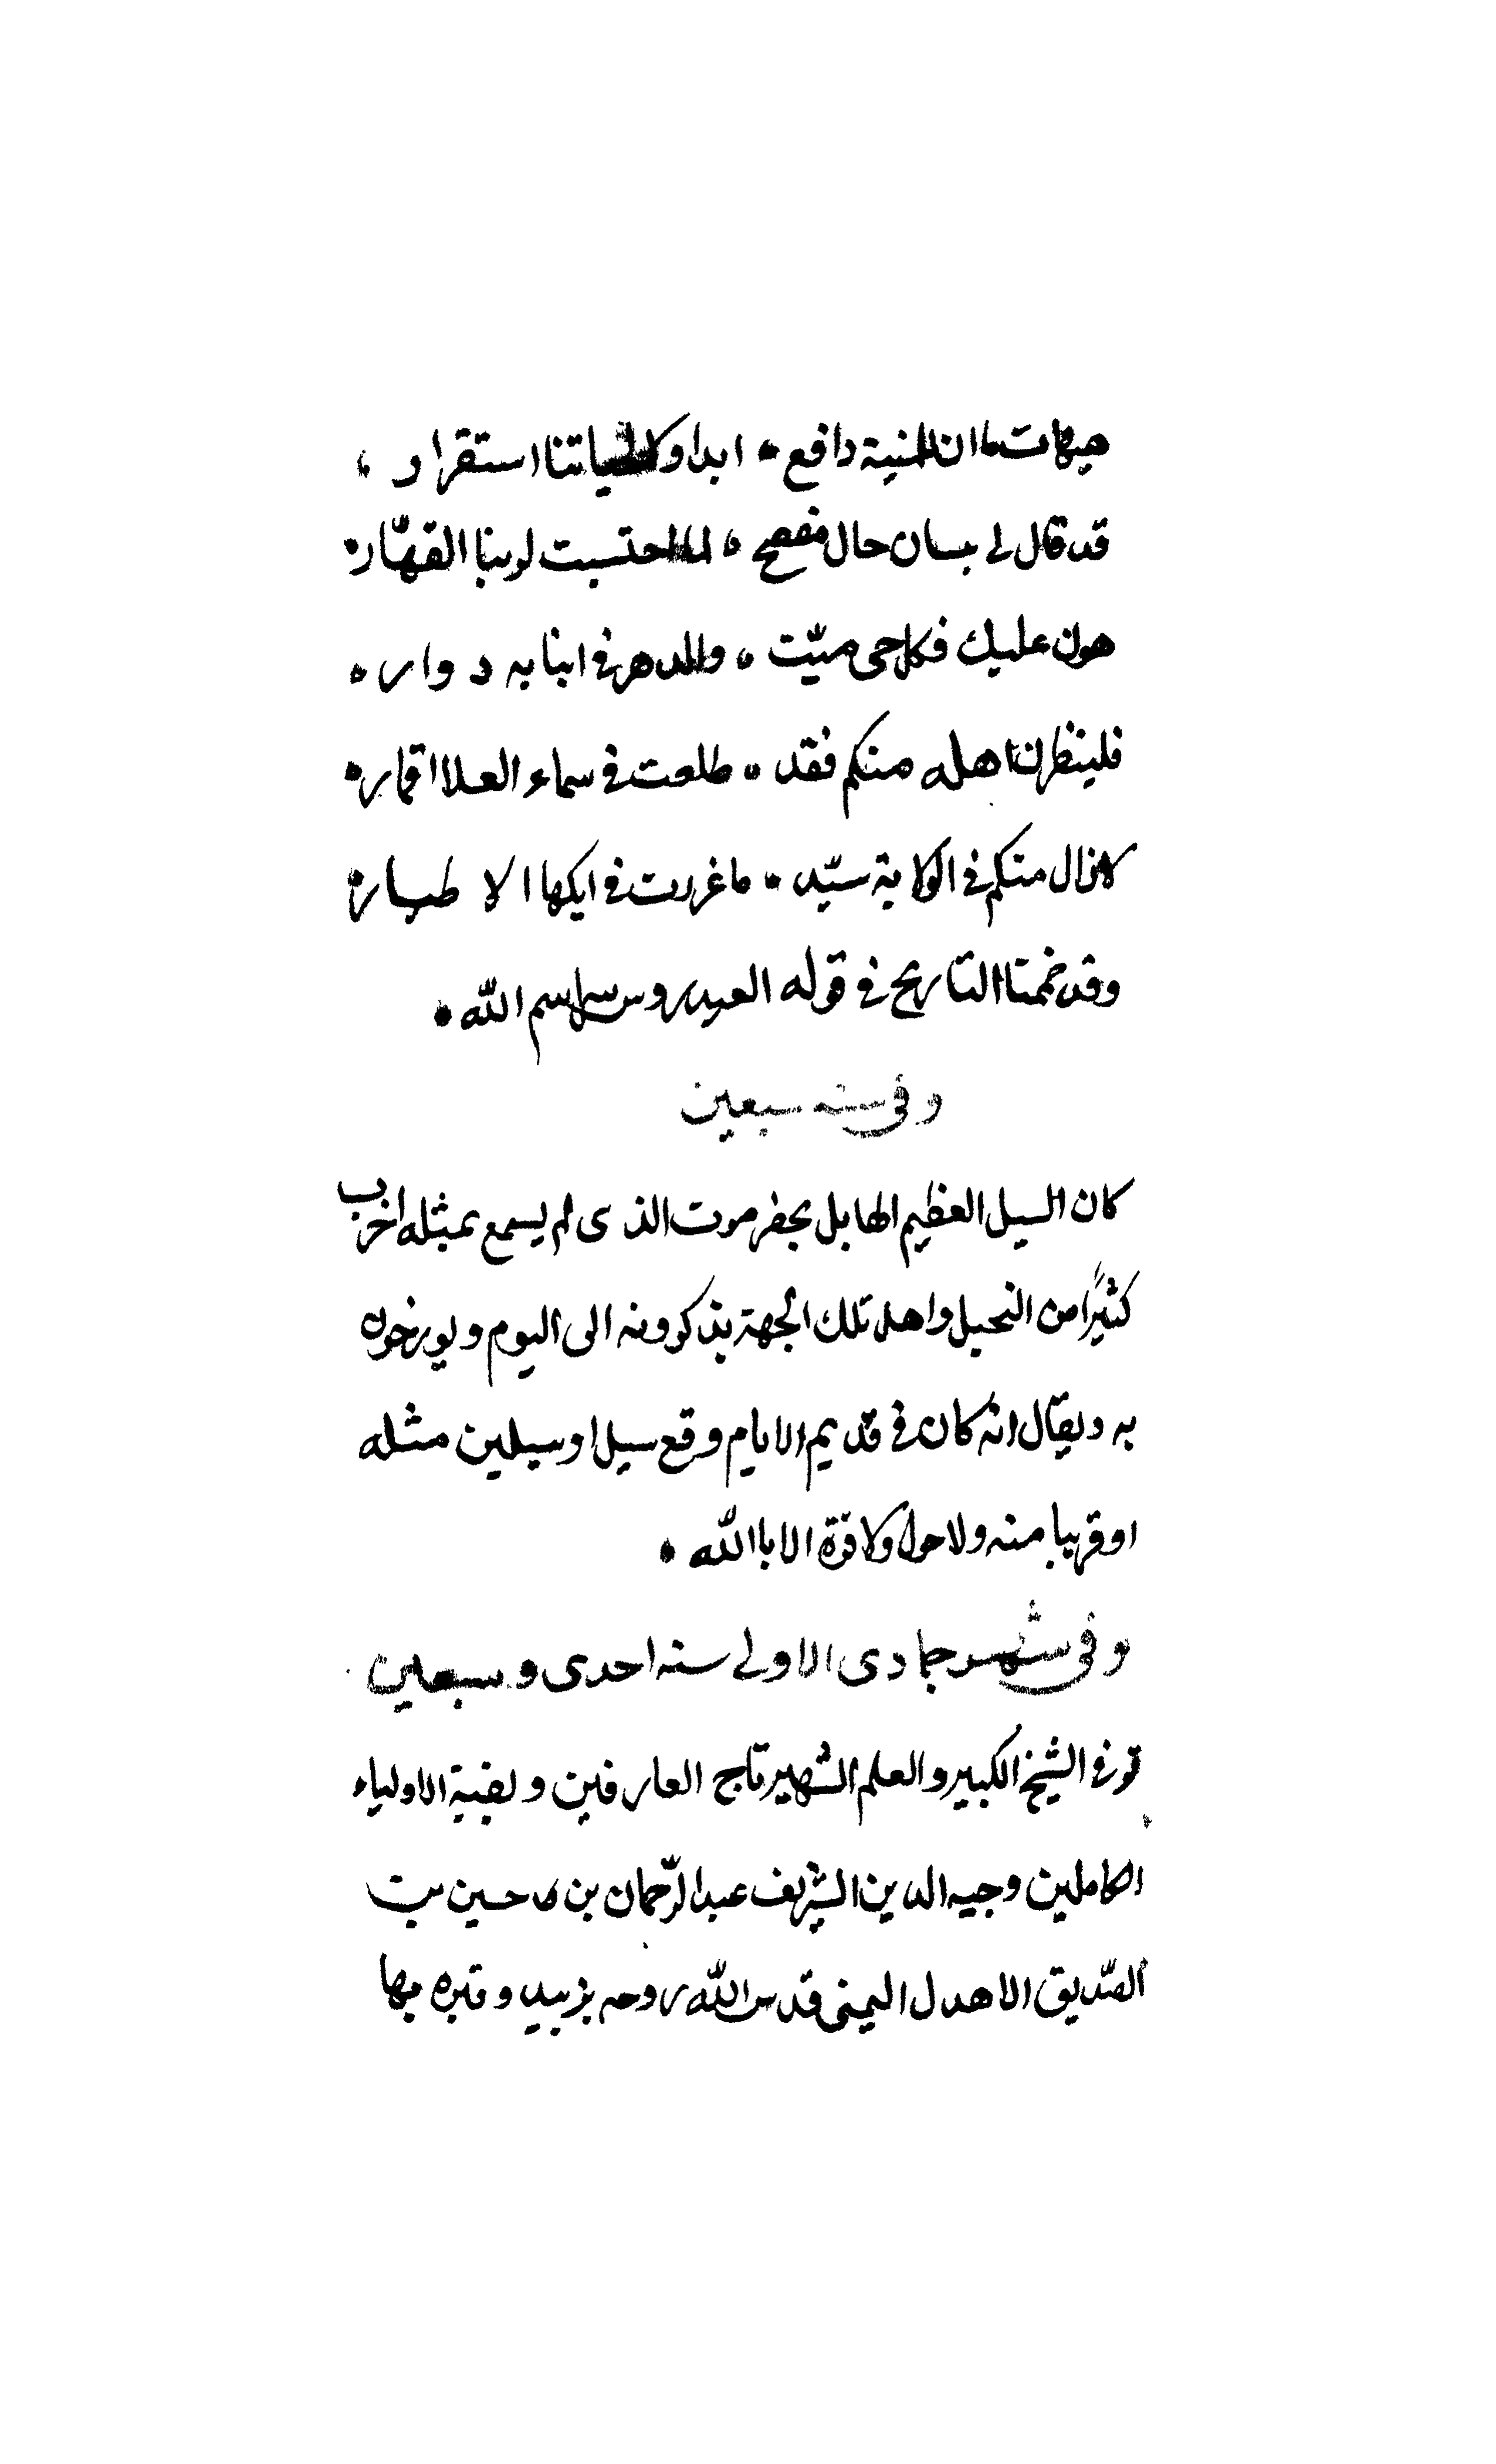 هيهات ما ان للمنية دافع ۰ ابدا ولا لحياتنا استقرار ،
قد قال لي بسان حال مفصح ۰ لما احتسبت لربنا القهّار ۰
هون عليك فكل حى ميّت ۰ والدهر في ابنا به دوار ۰
فلينظرن اهله منكم فقد ۰ طلعت في سماء العلا اقمار ۰
لا زال منكم في الولاية سيّد ۰ ما غردت في ايكها الاطيار ۰
وقد ضمنا التاريخ في قوله العيدروس سر اسم الله ۰
وفي سنه سبعين
كان السيل العظيم الهايل بحضرموت الذى لم يسمع بمثله اخرب
كثيرًا من النخيل واهل تلك الجهة يذكرونه الى اليوم ويورخون
به ويقال انه كان في قديم الايام وقع سيل او سيلين مثله
او قريبا منه ولا حول ولا قوة الا باالله ۰
وفي شهر جمادى الاولى سنه احدى وسبعين
توفى الشيخ الكبير والعلم الشهير تاج العارفين وبقية الاولياء
الكاملين وجيه الدين الشريف عبد الرّحمان بن حسين بن
الصّديق الاهدل اليمنى قدس الله روحه بزبيد وقبره بها